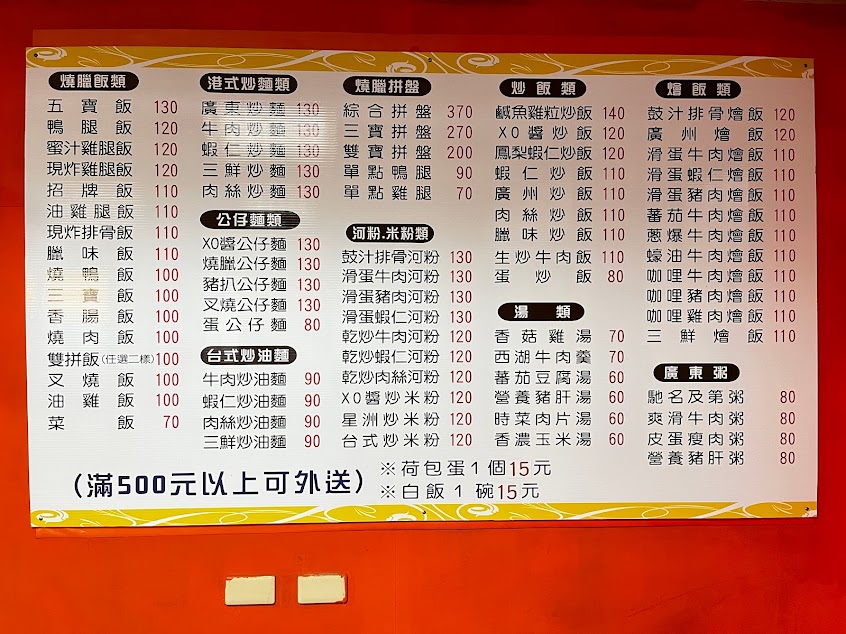 燒臘飯類
五寶飯 130
鴨腿飯 120
蜜汁雞腿飯 120
現炸雞腿飯 120
招牌飯 110
油雞腿飯 110
現炸排骨飯 110
臘味飯 110
燒鴨飯 100
三寶飯 100
香腸飯 100
燒肉飯 100
雙拼飯(任選二樣) 100
叉燒飯 100
油雞飯 100
菜飯 70
港式炒麵類
廣東炒麵 130
牛肉炒麵 130
蝦仁炒麵 130
三鮮炒麵 130
肉絲炒麵 130
公仔麵類
XO醬公仔麵 130
燒臘公仔麵 130
豬扒公仔麵 130
叉燒公仔麵 130
蛋公仔麵 80
台式炒油麵
牛肉炒油麵 90
蝦仁炒油麵 90
肉絲炒油麵 90
三鮮炒油麵 90
燒臘拼盤
綜合拼盤 370
三寶拼盤 270
雙寶拼盤 200
單點鴨腿 90
單點雞腿 70
河粉.米粉類
鼓汁排骨河粉 130
滑蛋牛肉河粉 130
滑蛋豬肉河粉 130
滑蛋蝦仁河粉 130
乾炒牛肉河粉 120
乾炒蝦仁河粉 120
乾炒肉絲河粉 120
XO醬炒米粉 120
星洲炒米粉 120
台式炒米粉 120
炒飯類
鹹魚雞粒炒飯 140
XO醬炒飯 120
鳳梨蝦仁炒飯 120
蝦仁炒飯 110
廣州炒飯 110
肉絲炒飯 110
臘味炒飯 110
生炒牛肉飯 110
蛋炒飯 80
湯類
香菇雞湯 70
西湖牛肉羹 70
蕃茄豆腐湯 60
營養豬肝湯 60
時菜肉片湯 60
香濃玉米湯 60
燴飯類
鼓汁排骨燴飯 120
廣州燴飯 120
滑蛋牛肉燴飯 110
滑蛋蝦仁燴飯 110
滑蛋豬肉燴飯 110
蕃茄牛肉燴飯 110
蔥爆牛肉燴飯 110
蠔油牛肉燴飯 110
咖哩牛肉燴飯 110
咖哩豬肉燴飯 110
咖哩雞肉燴飯 110
三鮮燴飯 110
廣東粥
馳名及第粥 80
爽滑牛肉粥 80
皮蛋瘦肉粥 80
營養豬肝粥 80
(滿500元以上可外送)
※荷包蛋1個15元
※白飯1碗15元